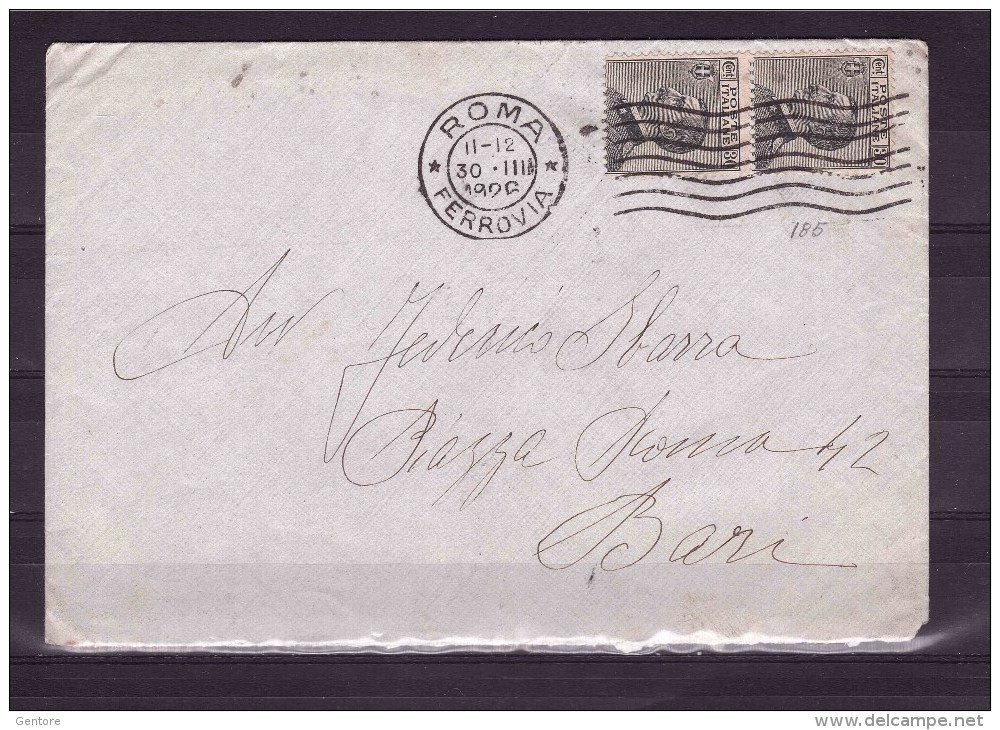 ROMA
11-12
30 · IIII
1926
★ FERROVIA ★
Cent POSTE ITALIANE 30
Cent POSTE ITALIANE 30
185
Avv Federico Sbarra
Piazza Roma 42
Bari
Gentore
www.delcampe.net